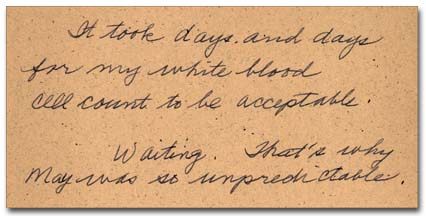 It took days and days
for my white blood
cell count to be acceptable.
Waiting. That's why
May was so unpredictable.